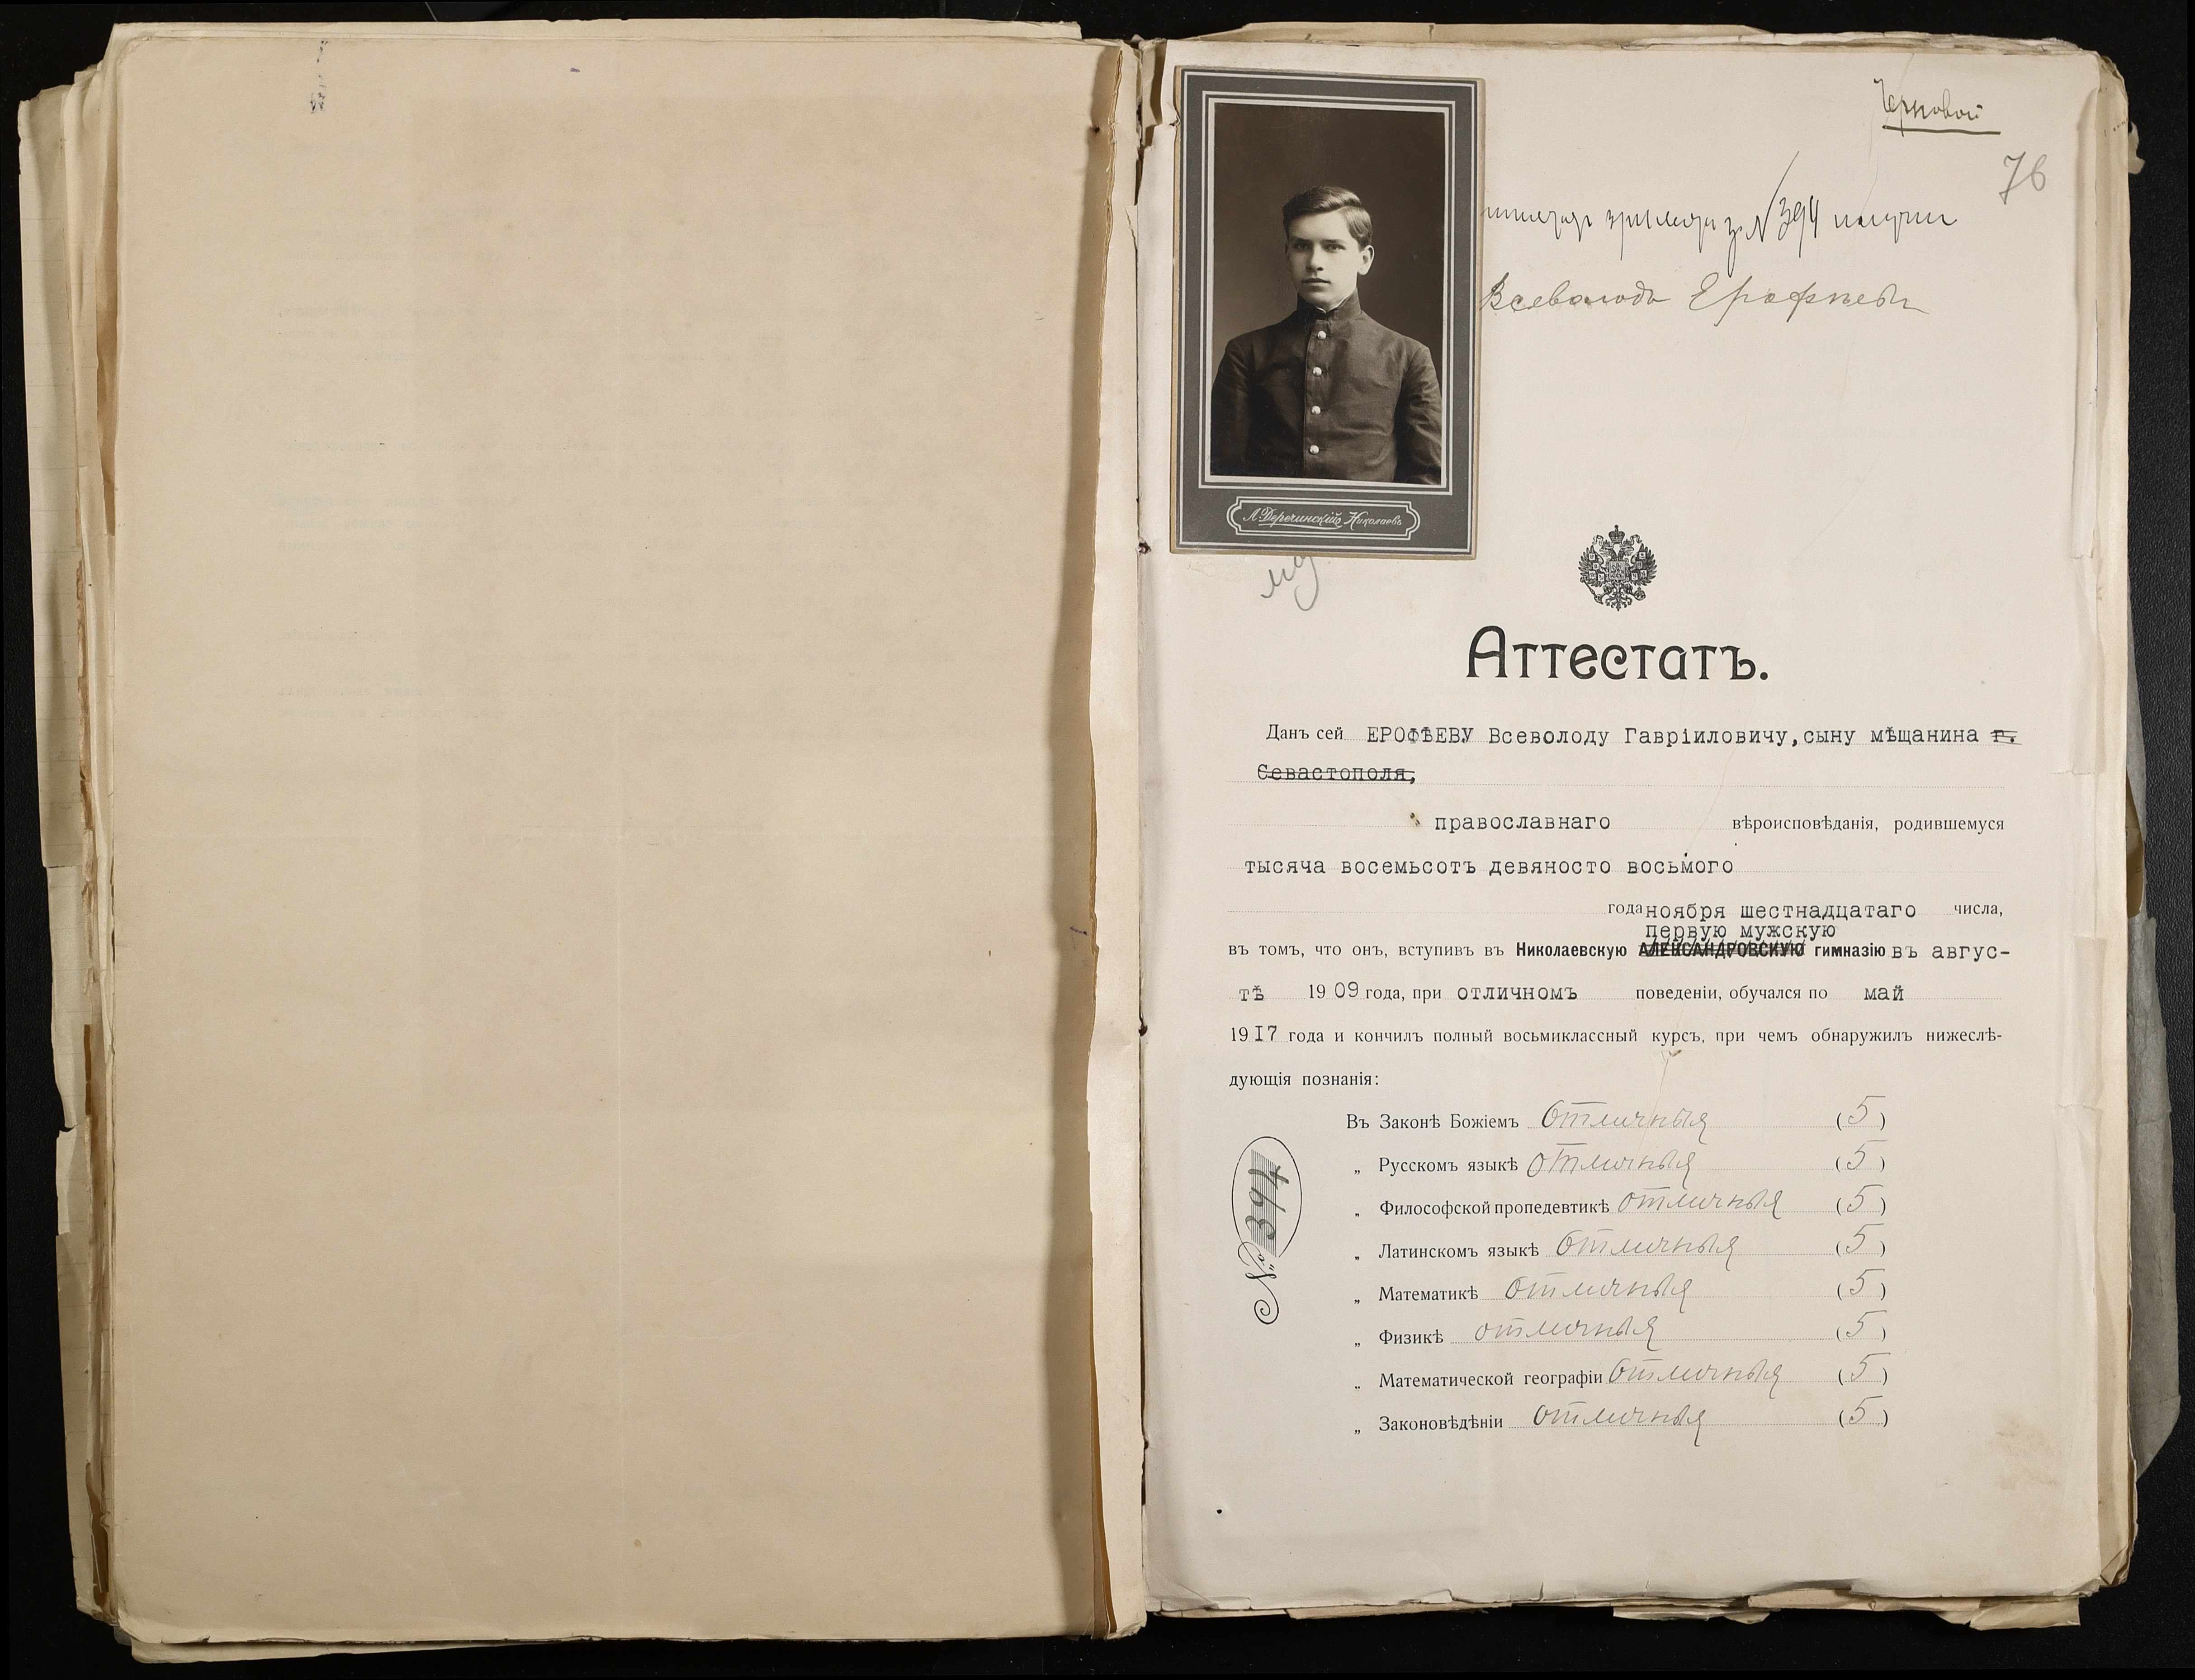 Черновой
76
за № 394 получил
Всеволодъ Ерофѣевъ
Л. Деречинскій Николаевъ
Аттестатъ.
Данъ сей ЕРОФѢЕВУ Всеволоду Гавріиловичу, сыну мѣщанина г.
Севастополя,
православнаго вѣроисповѣданія, родившемуся
тысяча восемьсотъ девяносто восьмого
года ноября шестнадцатаго числа,
первую мужскую
въ томъ, что онъ, вступивъ въ Николаевскую АЛЕКСАНДРОВСКУЮ гимназію въ авгус-
тѣ 1909 года, при отличномъ поведеніи, обучался по май
1917 года и кончилъ полный восьмиклассный курсъ, при чемъ обнаружилъ нижеслѣ-
дующія познанія:
Въ Законѣ Божіемъ отличныя (5)
„ Русскомъ языкѣ отличныя (5)
„ Философской пропедевтикѣ отличныя (5)
„ Латинскомъ языкѣ отличныя (5)
„ Математикѣ отличныя (5)
„ Физикѣ отличныя (5)
„ Математической географіи отличныя (5)
„ Законовѣдѣніи отличныя (5)
№ 394